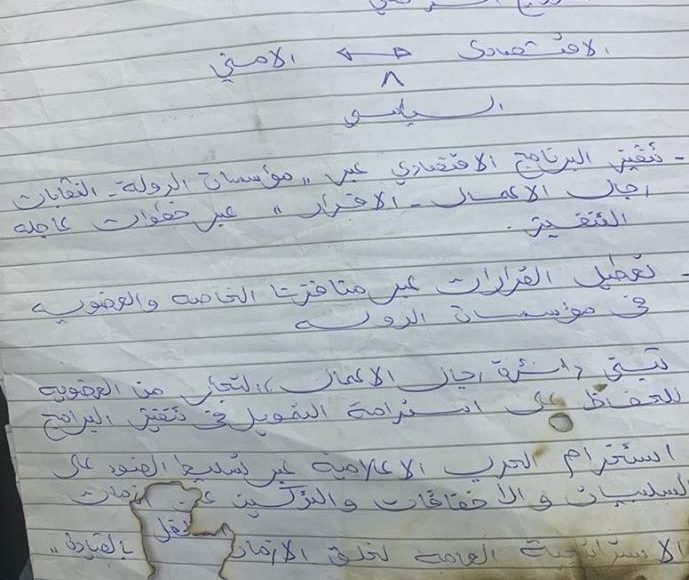 الاقتصادى <-> الامني
^
السياسى
- تنفيذ البرنامج الاقتصادي عبر " مؤسسات الدولة - النقابات
رجال الاعمال - الافراد " عبر خطوات عاجله
التنفيذ.
- تعطيل القرارات عبر منافذنا الخاصه والعضويه
فى مؤسسات الدوله
تبنى دائرة رجال الاعمال من العضويه
للحفاظ على استدامة التمويل فى تنفيذ البرامج
استخدام الحرب الاعلامية عبر تسليط الضوء على
السلبيات والاخفاقات والتركيز
الاستراتيجية العامه لخلق بالقيادة "